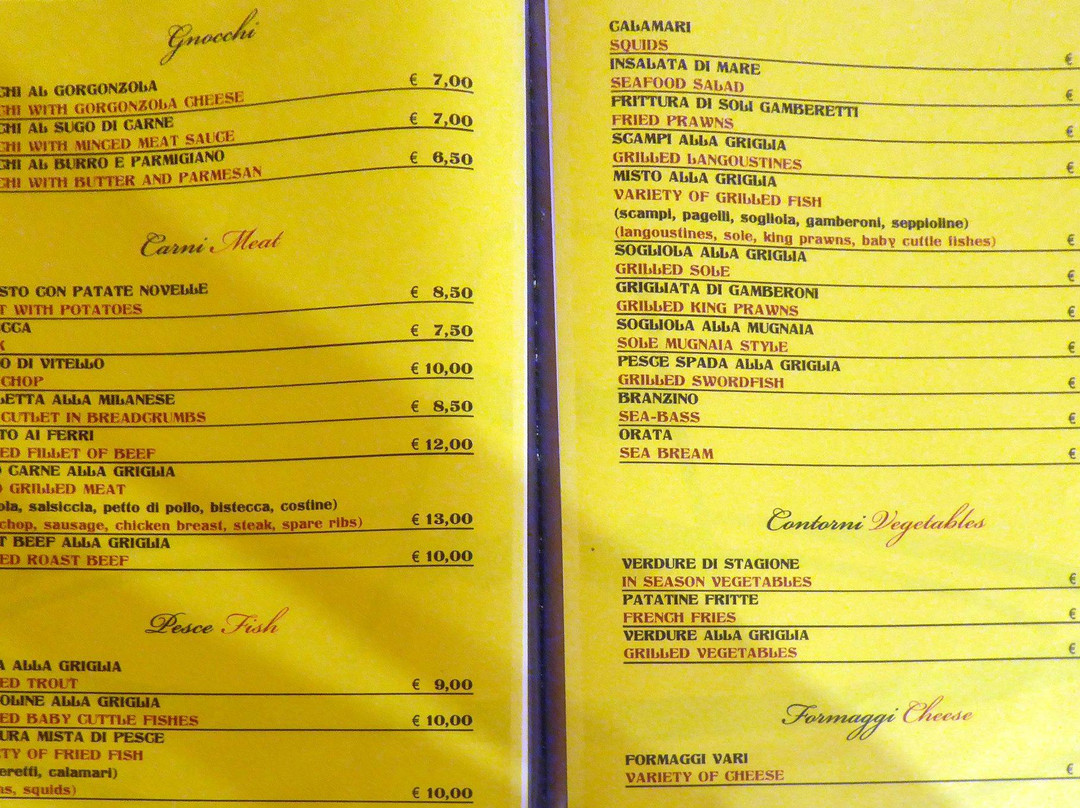 Gnocchi
CHI AL GORGONZOLA € 7,00
CHI WITH GORGONZOLA CHEESE
CHI AL SUGO DI CARNE € 7,00
CHI WITH MINCED MEAT SAUCE
CHI AL BURRO E PARMIGIANO € 6,50
CHI WITH BUTTER AND PARMESAN
Carni Meat
STO CON PATATE NOVELLE € 8,50
T WITH POTATOES
CCA € 7,50
K
O DI VITELLO € 10,00
CHOP
LETTA ALLA MILANESE € 8,50
CUTLET IN BREADCRUMBS
TO AI FERRI € 12,00
ED FILLET OF BEEF
O CARNE ALLA GRIGLIA
O GRILLED MEAT
ola, salsiccia, petto di pollo, bistecca, costine)
chop, sausage, chicken breast, steak, spare ribs) € 13,00
T BEEF ALLA GRIGLIA
ED ROAST BEEF € 10,00
Pesce Fish
A ALLA GRIGLIA
ED TROUT € 9,00
OLINE ALLA GRIGLIA
ED BABY CUTTLE FISHES € 10,00
URA MISTA DI PESCE
TY OF FRIED FISH
eretti, calamari)
ns, squids) € 10,00
CALAMARI
SQUIDS €
INSALATA DI MARE
SEAFOOD SALAD €
FRITTURA DI SOLI GAMBERETTI
FRIED PRAWNS €
SCAMPI ALLA GRIGLIA
GRILLED LANGOUSTINES €
MISTO ALLA GRIGLIA
VARIETY OF GRILLED FISH
(scampi, pagelli, sogliola, gamberoni, seppioline)
(langoustines, sole, king prawns, baby cuttle fishes) €
SOGLIOLA ALLA GRIGLIA
GRILLED SOLE €
GRIGLIATA DI GAMBERONI
GRILLED KING PRAWNS €
SOGLIOLA ALLA MUGNAIA
SOLE MUGNAIA STYLE €
PESCE SPADA ALLA GRIGLIA
GRILLED SWORDFISH €
BRANZINO
SEA-BASS €
ORATA
SEA BREAM €
Contorni Vegetables
VERDURE DI STAGIONE
IN SEASON VEGETABLES €
PATATINE FRITTE
FRENCH FRIES €
VERDURE ALLA GRIGLIA
GRILLED VEGETABLES €
Formaggi Cheese
FORMAGGI VARI
VARIETY OF CHEESE €